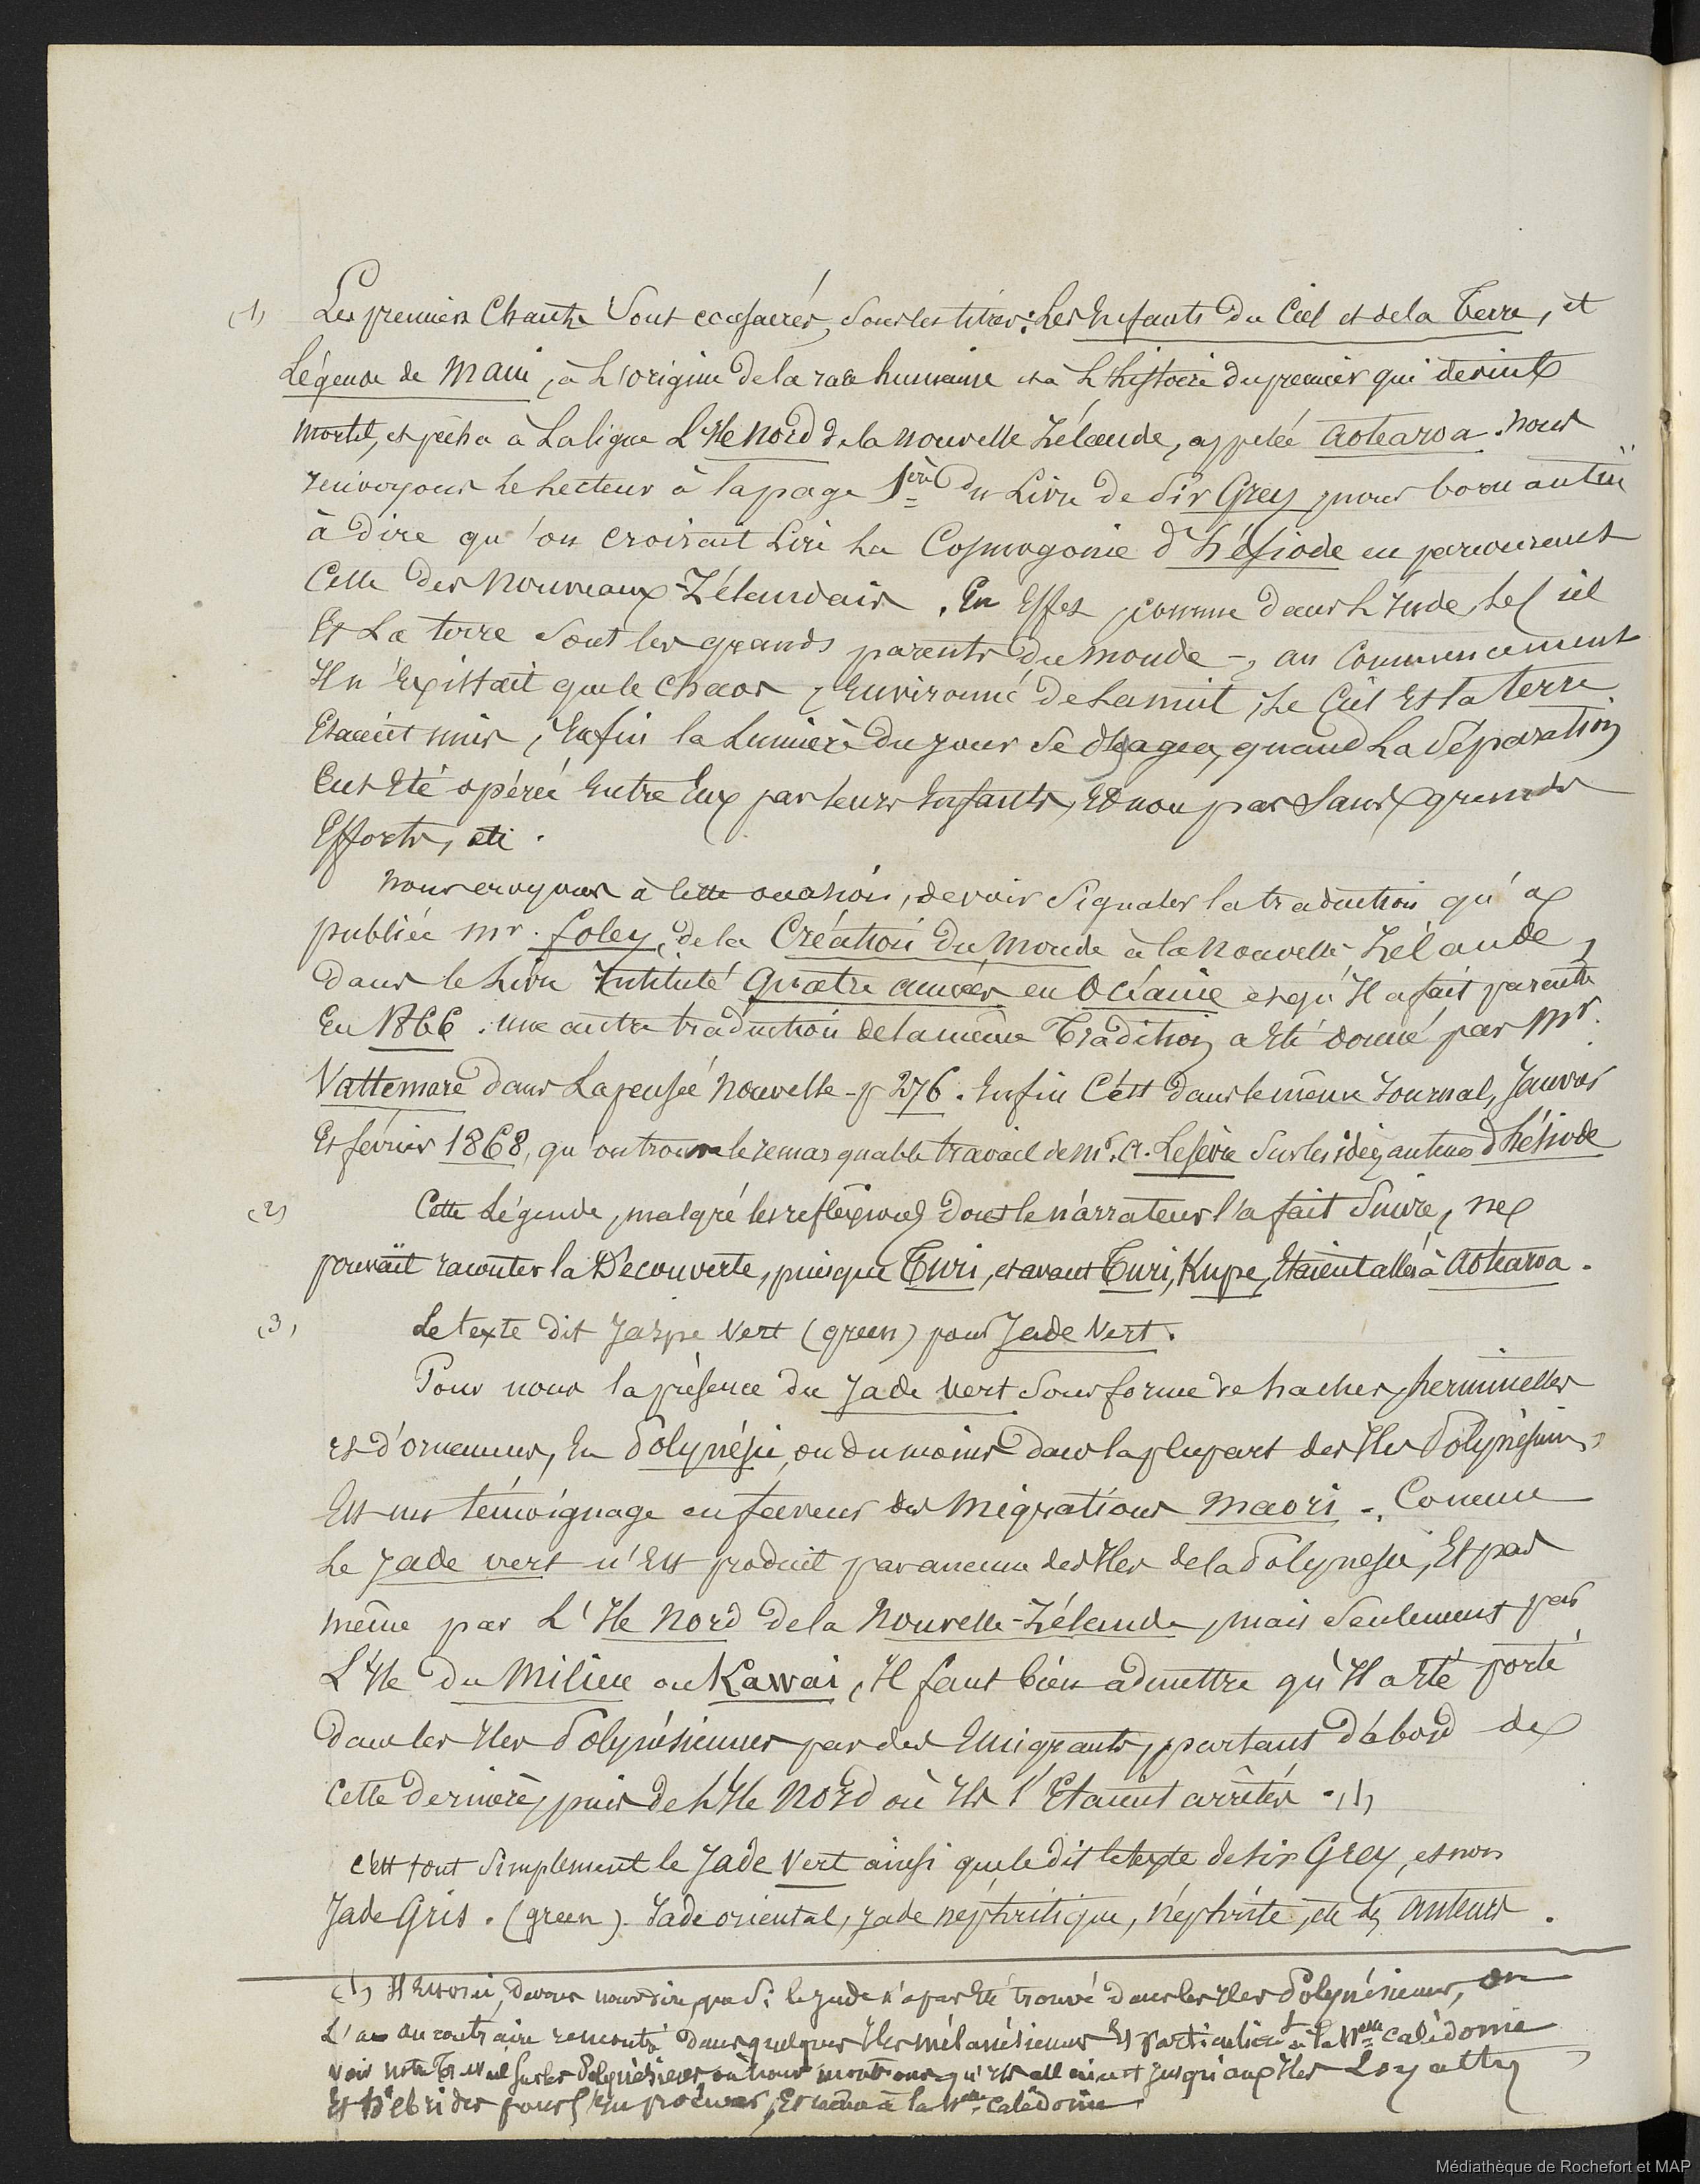 (1) Les premiers Chants Sont consacrés, sous les titres: Les Enfants du Ciel et de la Terre, et
Légende de Maui, à L'origine de la race humaine et à L'histoire du premier qui devint
mortel, et pêcha à La ligne L'Ile Nord de la Nouvelle Zélande, appelée Aotearoa. Nous
renvoyons le Lecteur à la page 1ère du Livre de Sir Grey, nous bornant ici
à dire qu'on croirait Lire La Cosmogonie d'Hésiode en parcourant
Celle des Nouveaux-Zélandais. En Effet, comme dans L'Inde, Le Ciel
Et La terre Sont les grands parents du monde -, au Commencement
Il n'Existait que le Chaos, Environné de La nuit, Le Ciel Et la terre
Etaient unis, Enfin la Lumière du jour Se dégagea, quand La Séparation
Eut Eté opérée Entre Eux par leurs Enfants, Et non pas Sans grands
Efforts, etc.
Nous croyons à cette occasion, devoir Signaler la traduction qu'a
publiée Mr. Foley, de la Création du Monde à la Nouvelle-Zélande,
dans le Livre Intitulé Quatre années en Océanie et qu'Il a fait paraître
En 1866. Une autre traduction de la même Tradition a Eté donné par Mr.
Vattemare dans La pensée Nouvelle - p 276. Enfin C'est dans le même Journal, Janvier
Et février 1868, qu'on trouve le remarquable travail de Mr. A. Lefèvre Sur les idées d'Hésiode
(2) Cette Légende, malgré les reflexions dont le narrateur l'a fait Suivre, ne
pouvait raconter la Découverte, puisque Turi, et avant Turi, Kupe, Etaient allés à Aotearoa.
(3) Le texte dit Jaspe Vert (green) pour Jade Vert.
Pour nous la présence du Jade Vert Sous forme de haches, herminettes
et d'ornemens, En Polynésie, ou du moins dans la plupart des Iles Polynésiennes,
Est un témoignage en faveur des Migrations Maori -. Comme
Le Jade vert n'Est produit par aucune des Iles de la Polynésie, Et pas
même par L'Ile Nord de la Nouvelle-Zélande, mais Seulement par
L'Ile du Milieu ou Kawai, Il faut bien admettre qu'Il a Eté porté
dans les Iles Polynésiennes par des Emigrants, partant d'abord de
Cette dernière, puis de L'Ile Nord où Ils s'Etaient arrêtés. (1)
C'est tout Simplement le Jade Vert ainsi que le dit le texte de Sir Grey, et non
Jade Gris. (green). Jade oriental, Jade néphritique, néphrite, etc des auteurs.
(1) Il devons nous dire, que Si le Jade n'a pas Eté trouvé dans les Iles Polynésiennes, on
L'a au contraire rencontré dans quelques Iles mélanésiennes Et particulièrt à la Nelle Calédonie
Voir notre Travail sur les Polynésiens où nous montrons qu'Ils allaient jusqu'aux Iles Loyalty
Et Hébrides pour s'en procurer, Et même à la Nelle Calédonie
Médiathèque de Rochefort et MAP